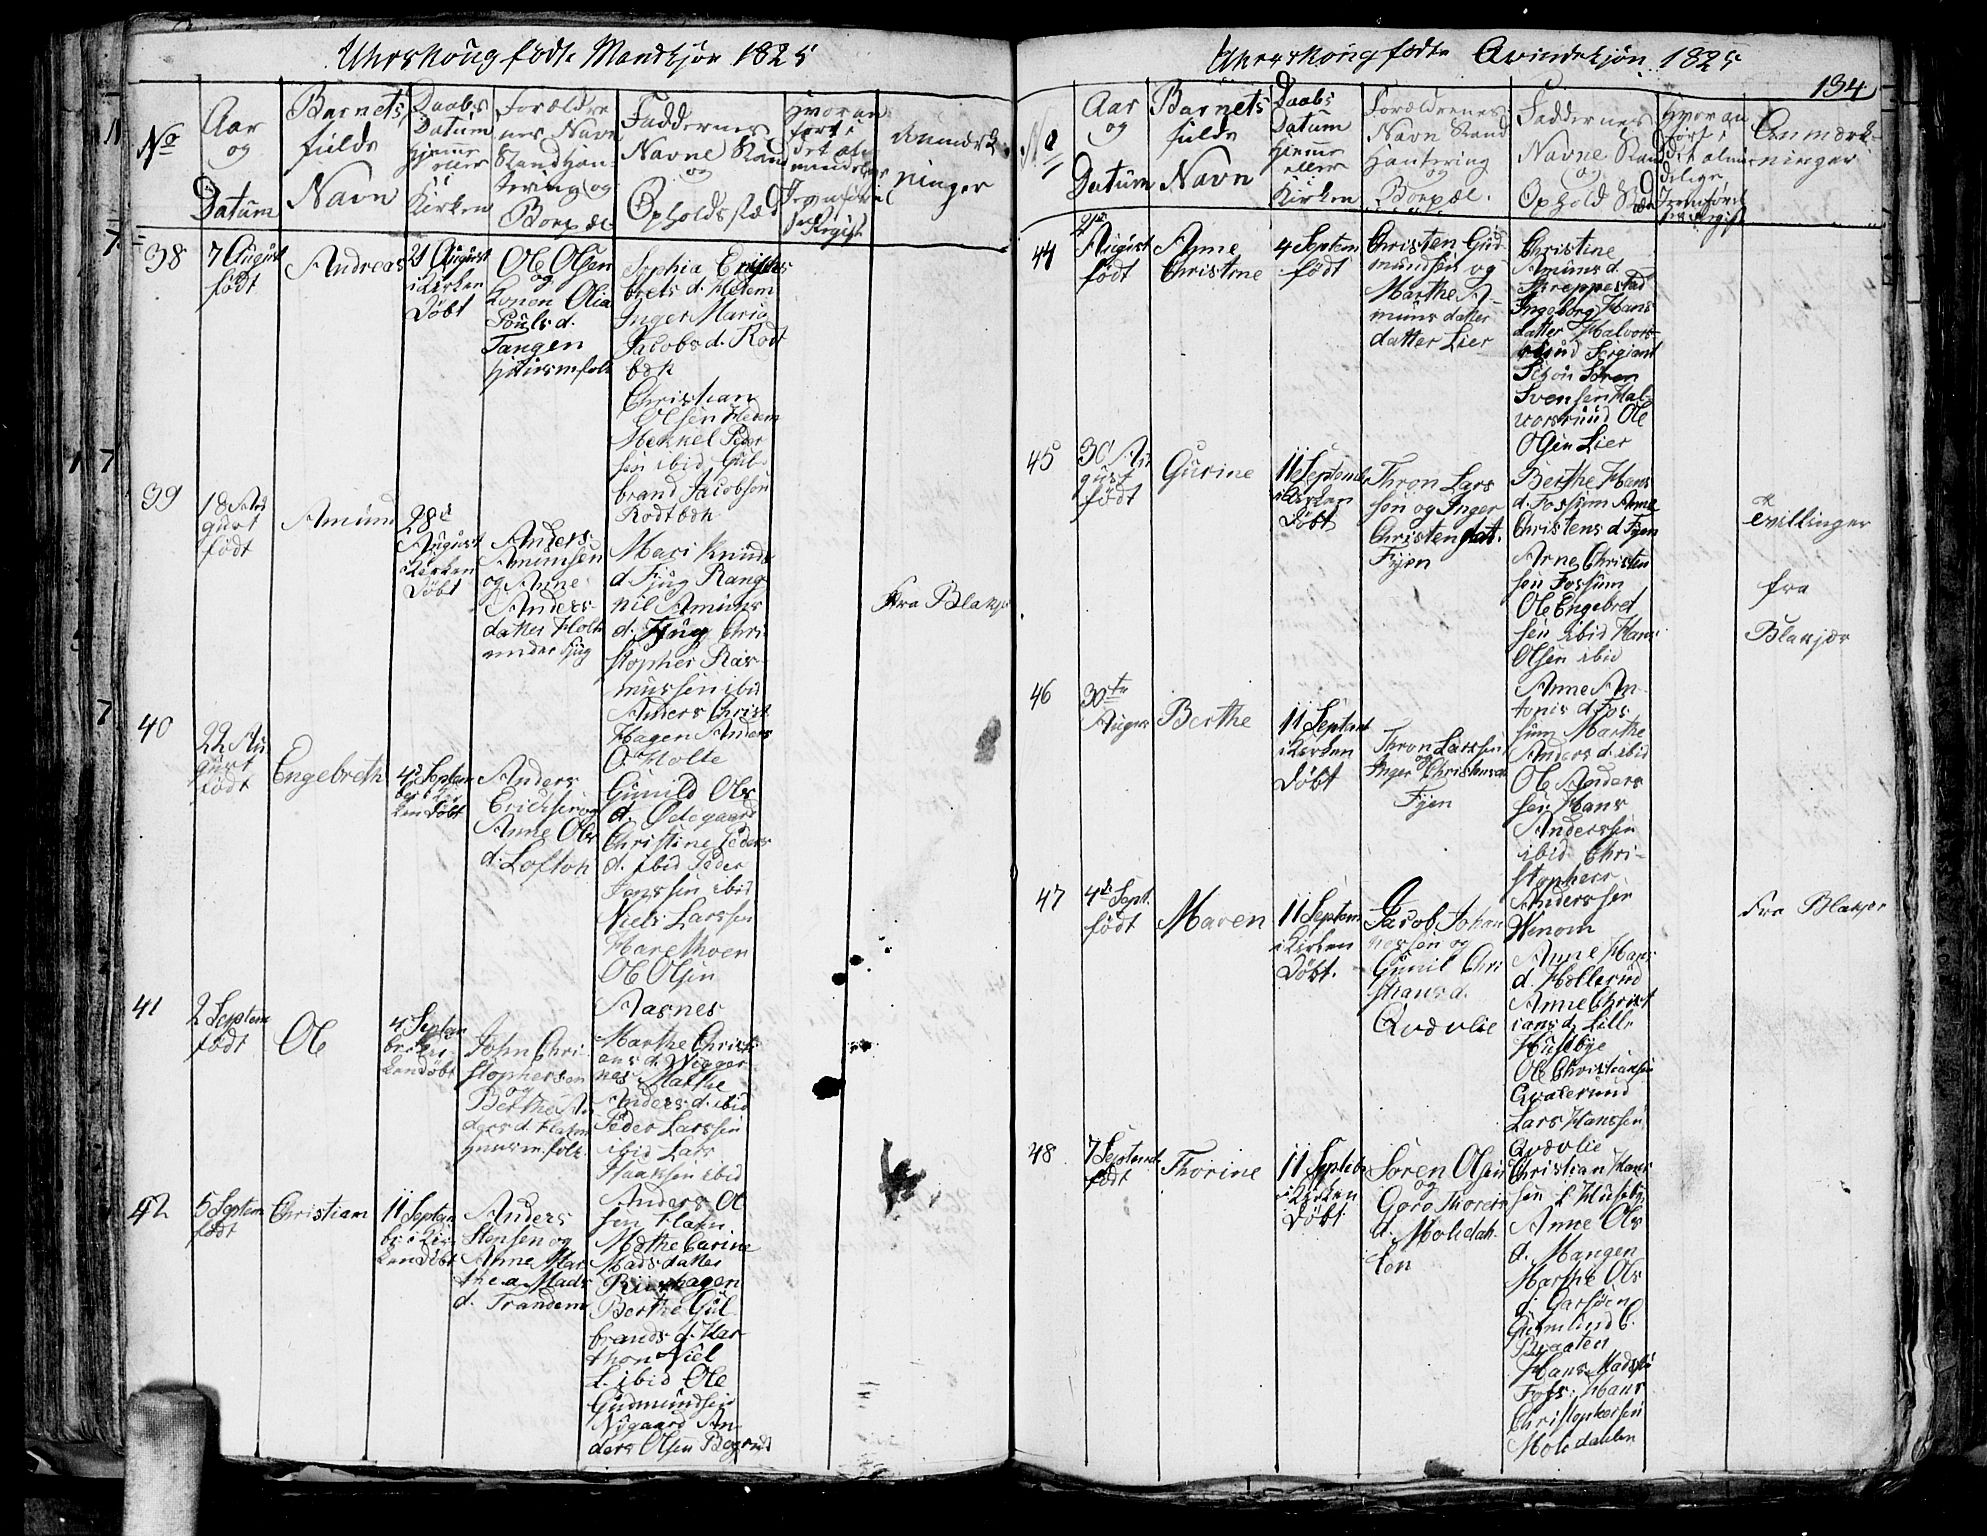 Uhrskoug fødte Mandkjøn 1825
No
Aar
og
Datum
Barnets
fulde
Navn
Daabs
Datum
hjemme
eller
i
Kirken
Forældre
nes Navn
Stand han-
tering og
Bopæl
Faddernes
Navne Stand
og
Opholdsstæd
Hvor an-
ført i
det al-
mindelige
Anmærk
ninger
38
7 August
født
Andreas
21 August
i Kirken
Døbt
Ole Olsen
og
Konen Olia
Pouls d.
Tangen
huusmfolk
Sophia
brets d. Hetem
Inger Maria
Jacobs d. Rodt
bøk
Christian
Olsen Hetem
Mekkel Peder
sen ibid Gul-
brand Jacobsen
Rodtbøk
39
18 Au
gust
født
Amund
28de
August
i Kirken
Døbt
Anders
Amundsen
og Anne
Anders-
datter Holte
under Fjug
Mari Knuds
d. Fjug Rang
nil Amuns
d. Fjug Chri
stopher Ras-
mussen ibid
Anders Christ
Hagen Anders
O. Holte
Fra Blakjer
40
22 Au
gust
født
Engebreth
4de Septem
ber i Kir
ken Døbt
Anders
Erichsen og
Anne Ols
d. Loftoh
Gunild Ols
d. Ødegaard
Christine Peders
d. ibid Peder
Jenssen ibid
Niels Larssen
Haremoen
Ole Olsen
Aasnes
41
2 Septem
født
Ole
4 Septem
ber i Kir-
ken døbt
John Chri-
stophersen
og
Berthe An
ders d. Haten
huusmfolk
Marthe Christi
ans d. Wigger
nes Marthe
Anders d. ibid
Peder Larssen
ibid Lars
Haaksen ibid
Anders Ol
sen Haten
42
5 Septem
født
Christian
11 Septem
ber i Kir
ken Døbt
Anders
Stensen og
Anne Mar
thea Mads
d. Trandem
Mothe Carine
Mads datter
Riishagen
Berthe Gul
brands d. Har
thon Niel
L. ibid Ole
Gudmundsen
Nygaard An-
ders Olsen Bogrud
Uhrskoug fødte Qvindekjøn 1825
134
No
Aar
og
Datum
Barnets
fulde
Navn
Daabs
Datum
hjemme
eller i
Kirken
Forældrenes
Navn Stand
Hantering
og
Bopæl
Faddernes
Navne Stand
og
Ophold Stæd
Hvor an
ført i
det almin
delige
Anmærk-
ninger
44
August
født
Anne
Christine
4 Septem
født
Christen Gud
mundsen og
Marthe A-
muns datter
datter Lier
Christine
Amuns d.
Skreppestad
Ingeborg Hans
datter Halvors-
rud Sergiant
Schou Søren
Svensen Hal-
vorsrud Ole
Olsen Lier
45
30 Au
gust
født
Gurine
11 Septemb
i Kirken
Døbt
Thron Lars
sen og Inger
Christen dat.
Fyen
Berthe Hans
d. Fossum Anne
Christens d Fyen
Arne Christen
sen Fossum
Ole Engebret
sen ibid Hans
Olsen ibid
Tvillinger
fra
Blakjær
46
30te
August
Berthe
11 Septemb
i Kirken
Døbt
Thron Larssen
og
Inger Christensen
Fyen
Anne An-
tonis d. Fos
sum Marthe
Anders d. ibid
Ole Anders
sen Hans
Anderssen
ibid Chri-
stophers
Anderssen
Wenom
47
4de Sept.
født
Maren
11 Septem
i Kirken
Døbt.
Jacob Johan
nessen og
Gunil Chri
stians d.
Qvævlie
Anne Hans
d. Hollerud
Anne Christ
ians d. Lille
Husebye
Ole Christiansen
Qvakerund
Lars Hanssen
Qvævlie
Fra Blakjer
48
7 Septemb
født
Thorine
11 Septeb
i Kirken
Døbt
Søren Olsen
og
Goro Thorers
d. Moledah
len
Christian Hans
sen L Huseby
Anne Ols
d. Mangen
Marthe Ols
d. Garsøen
Gudmund C.
Braaten
Hans Madsen
Foss: Hans
Christophersen
Moledahlen